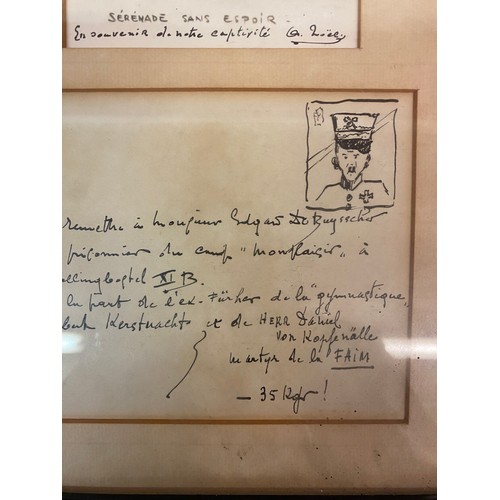 SÉRÉNADE SANS ESPOIR -
En souvenir de notre captivité
remettre à Monsieur Edgard De Ruysscher
prisonnier du camp "Monplaisir" à
XI B.
la part de l'ex-Fürher de la "gymnastique"
Kerstnachts et de HERR Daniel
von Kopfenälle
martyr de la FAIM
— 35 Kgr !